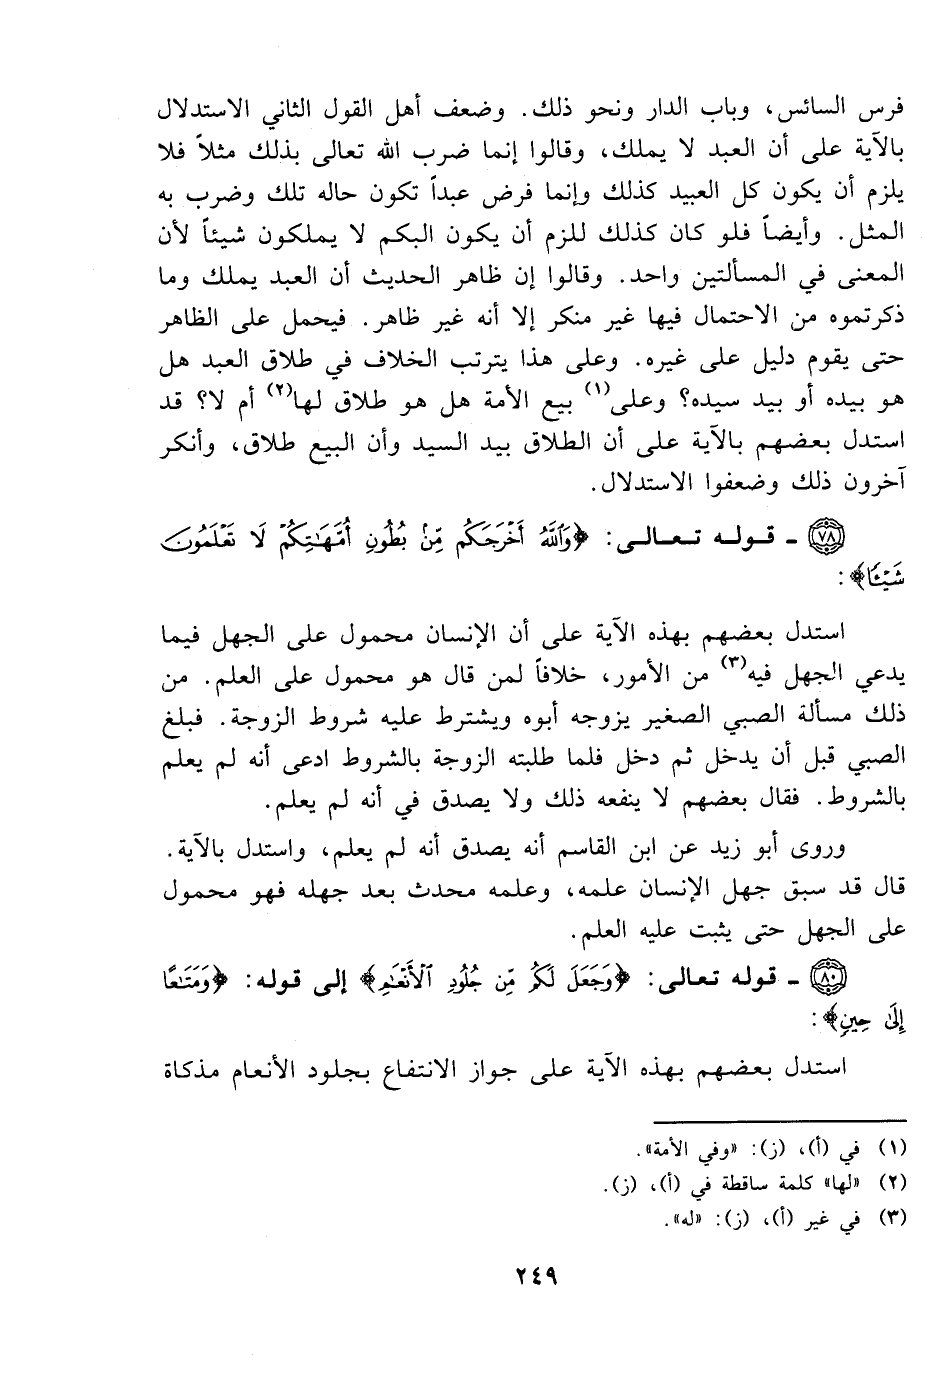 فرس السائس، وباب الدار ونحو ذلك. وضعف أهل القول الثاني الاستدلال
بالآية على أن العبد لا يملك، وقالوا إنما ضرب الله تعالى بذلك مثلاً فلا
يلزم أن يكون كل العبيد كذلك وإنما فرض عبداً تكون حاله تلك وضرب به
المثل. وأيضاً فلو كان كذلك للزم أن يكون البكم لا يملكون شيئاً لأن
المعنى في المسألتين واحد. وقالوا إن ظاهر الحديث أن العبد يملك وما
ذكرتموه من الاحتمال فيها غير منكر إلا أنه غير ظاهر. فيحمل على الظاهر
حتى يقوم دليل على غيره. وعلى هذا يترتب الخلاف في طلاق العبد هل
هو بيده أو بيد سيده؟ وعلى(١) بيع الأمة هل هو طلاق لها(٢) أم لا؟ قد
استدل بعضهم بالآية على أن الطلاق بيد السيد وأن البيع طلاق، وأنكر
آخرون ذلك وضعفوا الاستدلال.
(٧٨) - قوله تعالى: ﴿وَٱللَّهُ أَخۡرَجَكُم مِّنۢ بُطُونِ أُمَّهَٰتِكُمۡ لَا تَعۡلَمُونَ
شَيۡـٔٗا﴾:
استدل بعضهم بهذه الآية على أن الإنسان محمول على الجهل فيما
يدعي الجهل فيه(٣) من الأمور، خلافاً لمن قال هو محمول على العلم. من
ذلك مسألة الصبي الصغير يزوجه أبوه ويشترط عليه شروط الزوجة. فبلغ
الصبي قبل أن يدخل ثم دخل فلما طلبته الزوجة بالشروط ادعى أنه لم يعلم
بالشروط. فقال بعضهم لا ينفعه ذلك ولا يصدق في أنه لم يعلم.
وروى أبو زيد عن ابن القاسم أنه يصدق أنه لم يعلم، واستدل بالآية.
قال قد سبق جهل الإنسان علمه، وعلمه محدث بعد جهله فهو محمول
على الجهل حتى يثبت عليه العلم.
(٨٠) - قوله تعالى: ﴿وَجَعَلَ لَكُم مِّن جُلُودِ ٱلۡأَنۡعَٰمِ﴾ إلى قوله: ﴿وَمَتَٰعًا
إِلَىٰ حِينٖ﴾:
استدل بعضهم بهذه الآية على جواز الانتفاع بجلود الأنعام مذكاة
(١) في (أ)، (ز): «وفي الأمة».
(٢) «لها» كلمة ساقطة في (أ)، (ز).
(٣) في غير (أ)، (ز): «له».
٢٤٩